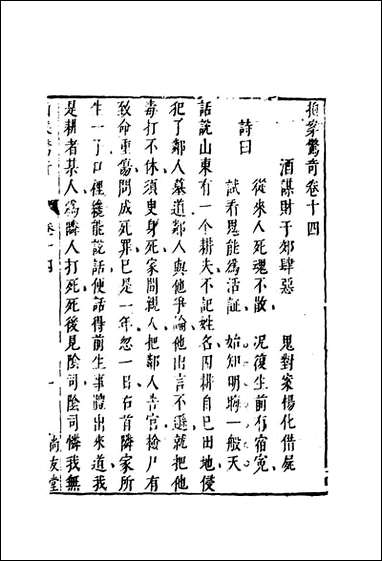 拍案驚奇卷十四
酒謀財于郊肆惡　鬼對案楊化借屍
詩曰
從來人死魂不散　况復生前有宿冤
試看鬼能爲活証　始知明晦一般天
話說山東有一个耕夫不記姓名因耕自己田地侵
犯了鄰人墓道鄰人與他爭論他出言不遜就把他
毒打不休須臾身死家間親人把鄰人告官檢尸有
致命重傷問成死罪已是一年忽一日右首隣家所
生一子口裡纔能說話便話得前生事體出來道我
是耕者某人爲隣人打死死後見陰司陰司憐我無
卷十四
一
尚友堂